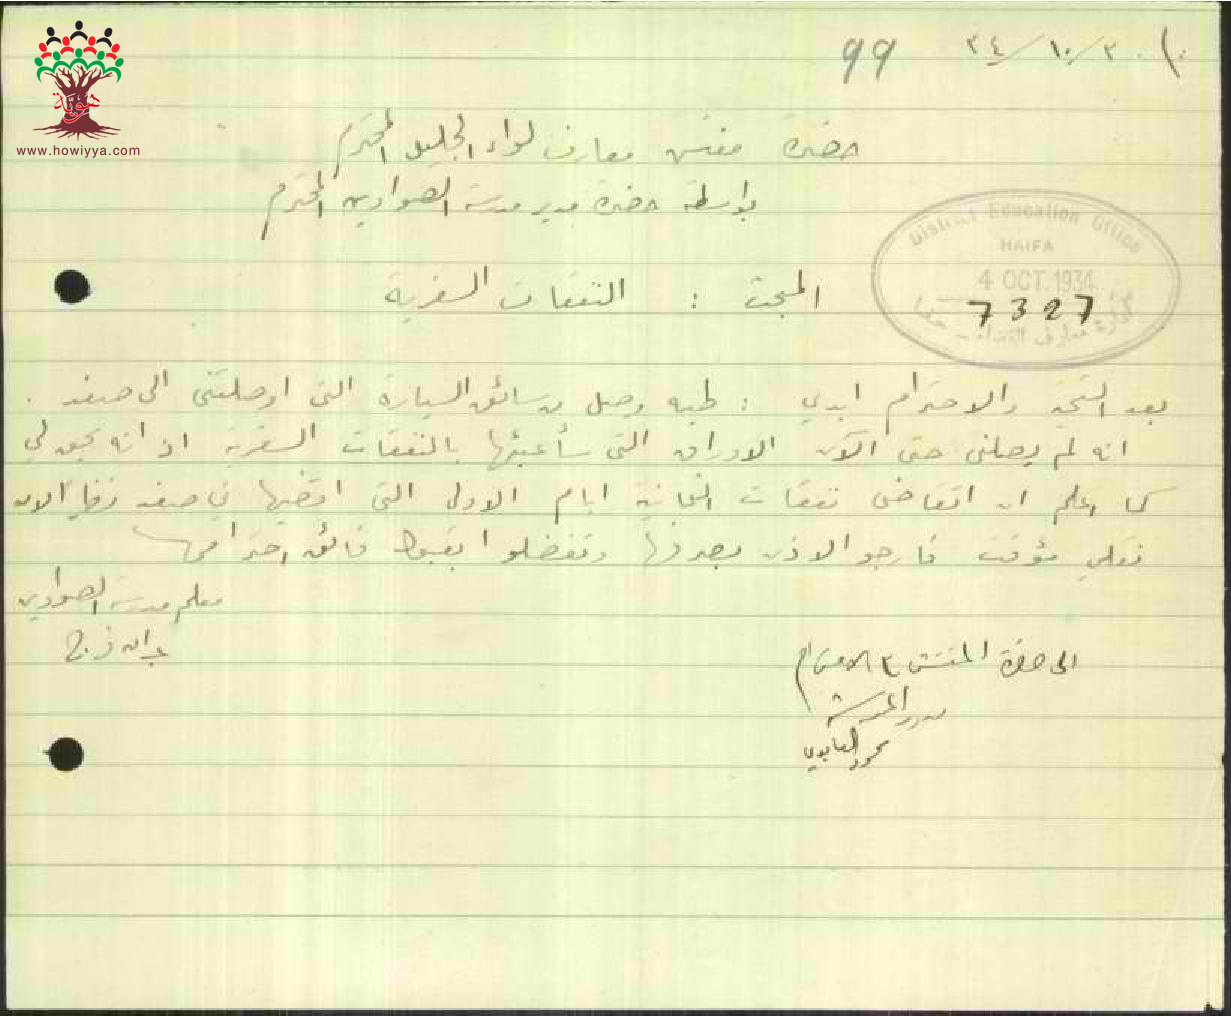 ٣٤/١٠/٣
99
حضرة مفتش معارف لواء الجليل المحترم
بواسطة حضرة مدير مدرسة الصواوين المحترم
هوية
www.howiyya.com
District Education Office
HAIFA
4 OCT. 1934
7327
إدارة معارف القضاء حيفا
المبحث : النفقات السفرية
بعد التحية والاحترام ابدي : طيه وصل من سائق السيارة التي اوصلتني الى صفد .
انه لم يصلني حتى الآن الاوراق التي سأعبئها بالنفقات السفرية اذ انه يحق لي
كما اعلم ان اتقاضى نفقات الثمانية ايام الاولى التي اقضيها في صفد نظرا لان
نقلي مؤقت فارجو الاذن بصرفها وتفضلوا بقبول فائق احترامي
معلم مدرسة
الى حضرة المفتش مع الاحترام
مدير المدرسة
محمود العابدي